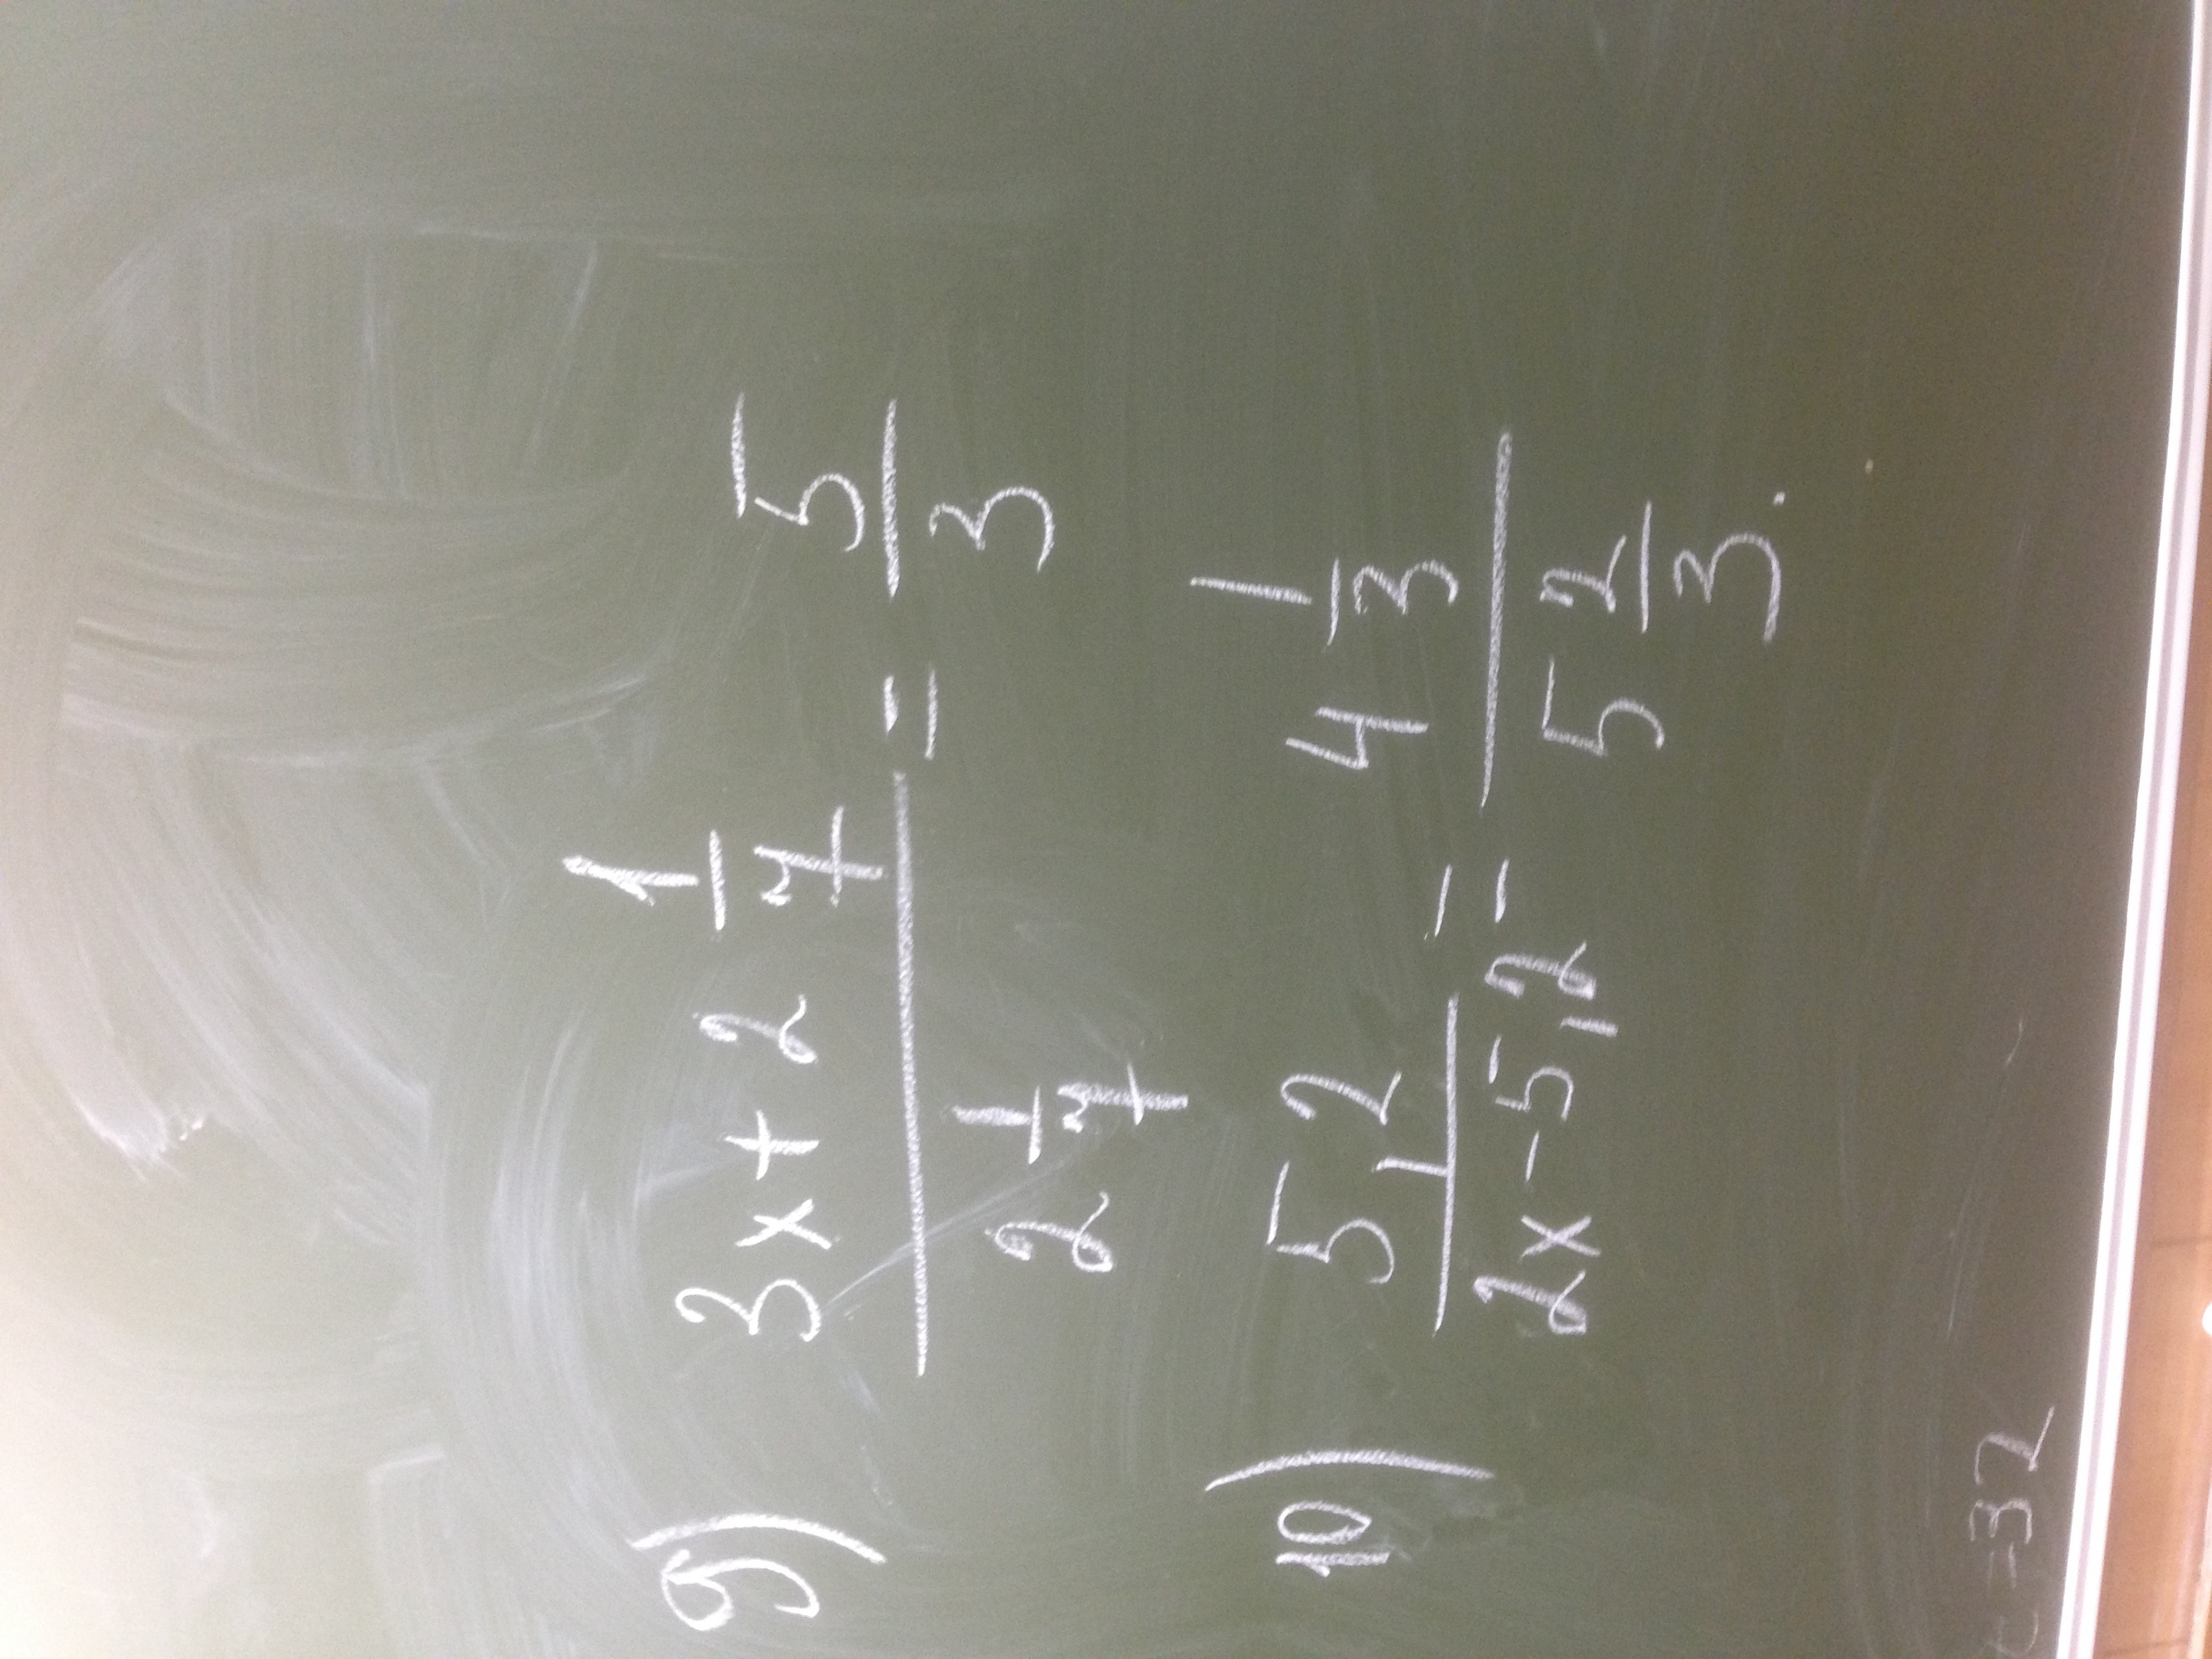 9) (3x + 2 1/4) / (2 1/4) = 5/3
10) 5,2 / (2x - 5,2) = (4 1/3) / (5 2/3).
=32